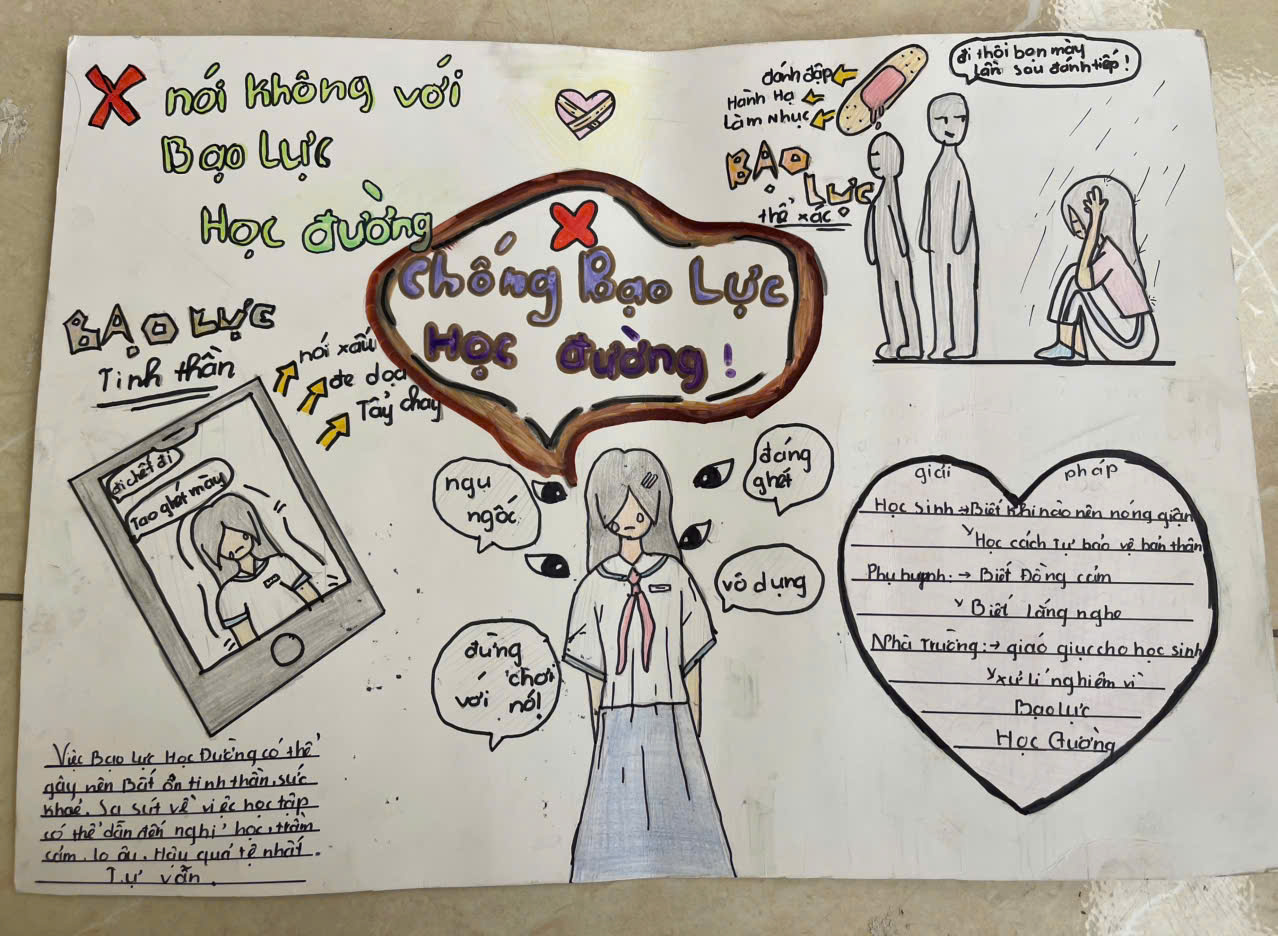 nói không với
Bạo Lực
Học đường
Chống Bạo Lực
Học đường!
đánh đập
Hành Hạ
Làm Nhục
BẠO
LỰC
thể xác
đi thôi bọn mày
lần sau đánh tiếp!
BẠO LỰC
Tinh thần
nói xấu
đe dọa
Tẩy chay
đi chết đi
Tao ghét mày
ngu
ngốc
đáng
ghét
vô dụng
đừng
chơi
với nó!
giải pháp
Học sinh → Biết khi nào nên nóng giận
Học cách tự bảo vệ bản thân
Phụ huynh: → Biết Đồng cảm
Biết lắng nghe
Nhà Trường: → giáo giục cho học sinh
xử lí nghiêm vì
Bạo lực
Học Đường
Việc Bạo Lực Học Đường có thể
gây nên Bất ổn tinh thần, sức
khoẻ. Sa sút về việc học tập
có thể dẫn đến nghỉ học, trầm
cảm, lo âu. Hậu quả tệ nhất.
Tự vẫn.